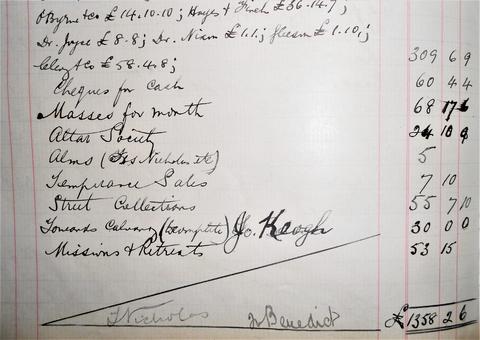 O'Byrne & Co £14.10.10; Hayes & Finch £56.14.7;
Dr. Joyce £8.8; Dr. Nixon £1.1; Gleeson £1.10;
Clery & Co £58.4.8; 309 6 9
Cheques for Cash 60 4 4
Masses for month 68 17 6
Altar Society 24 10 9
Alms (Frs Nicholas etc) 5
Temperance Sales 7 10
Street Collections 55 7 10
Towards Calvary (Incomplete) Jo. Keogh 30 0 0
Missions & Retreats 53 15
F Nicholas Fr Benedict £1358 2 6